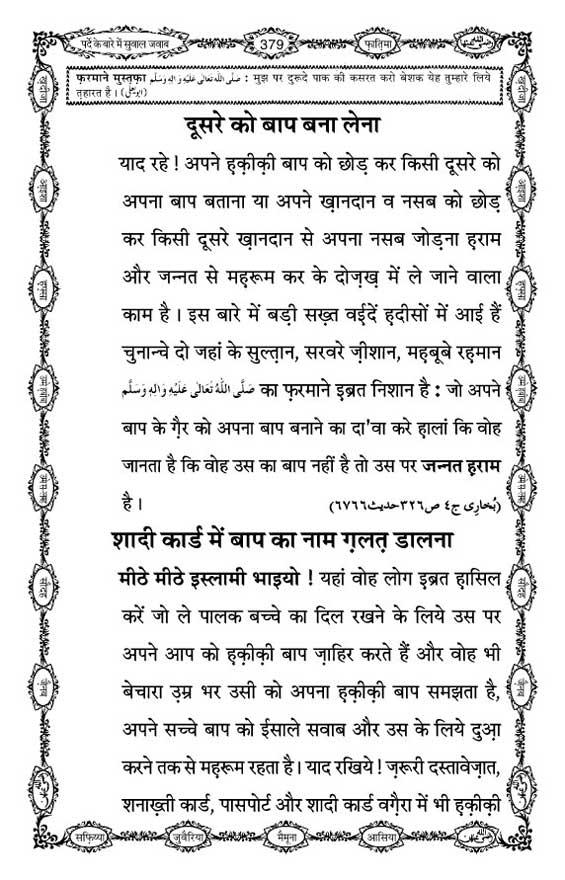 पर्दे के बारे में सुवाल जवाब
379
फ़ातिमा
फ़रमाने मुस्तफ़ा صَلَّى اللّٰهُ تَعَالٰى عَلَيْهِ وَاٰلِهٖ وَسَلَّم : मुझ पर दुरूदे पाक की कसरत करो बेशक येह तुम्हारे लिये
त़हारत है । (ابو یعلی)
दूसरे को बाप बना लेना
याद रहे ! अपने ह़क़ीक़ी बाप को छोड़ कर किसी दूसरे को
अपना बाप बताना या अपने ख़ानदान व नसब को छोड़
कर किसी दूसरे ख़ानदान से अपना नसब जोड़ना ह़राम
और जन्नत से मह़रूम कर के दोज़ख़ में ले जाने वाला
काम है । इस बारे में बड़ी सख़्त वई़दें ह़दीसों में आई हैं
चुनान्चे दो जहां के सुल्त़ान, सरवरे ज़ीशान, मह़बूबे रह़मान
صَلَّى اللّٰهُ تَعَالٰى عَلَيْهِ وَاٰلِهٖ وَسَلَّم का फ़रमाने इ़ब्रत निशान है : जो अपने
बाप के ग़ैर को अपना बाप बनाने का दा'वा करे ह़ालां कि वोह
जानता है कि वोह उस का बाप नहीं है तो उस पर जन्नत ह़राम
है । (بُخارِی ج٤ ص٣٢٦ حدیث٦٧٦٦)
शादी कार्ड में बाप का नाम ग़लत़ डालना
मीठे मीठे इस्लामी भाइयो ! यहां वोह लोग इ़ब्रत ह़ासिल
करें जो ले पालक बच्चे का दिल रखने के लिये उस पर
अपने आप को ह़क़ीक़ी बाप ज़ाहिर करते हैं और वोह भी
बेचारा उ़म्र भर उसी को अपना ह़क़ीक़ी बाप समझता है,
अपने सच्चे बाप को ईसाले सवाब और उस के लिये दुआ़
करने तक से मह़रूम रहता है । याद रखिये ! ज़रूरी दस्तावेज़ात,
शनाख़्ती कार्ड, पासपोर्ट और शादी कार्ड वग़ैरा में भी ह़क़ीक़ी
सफ़िय्या
जुवैरिया
मैमूना
आसिया